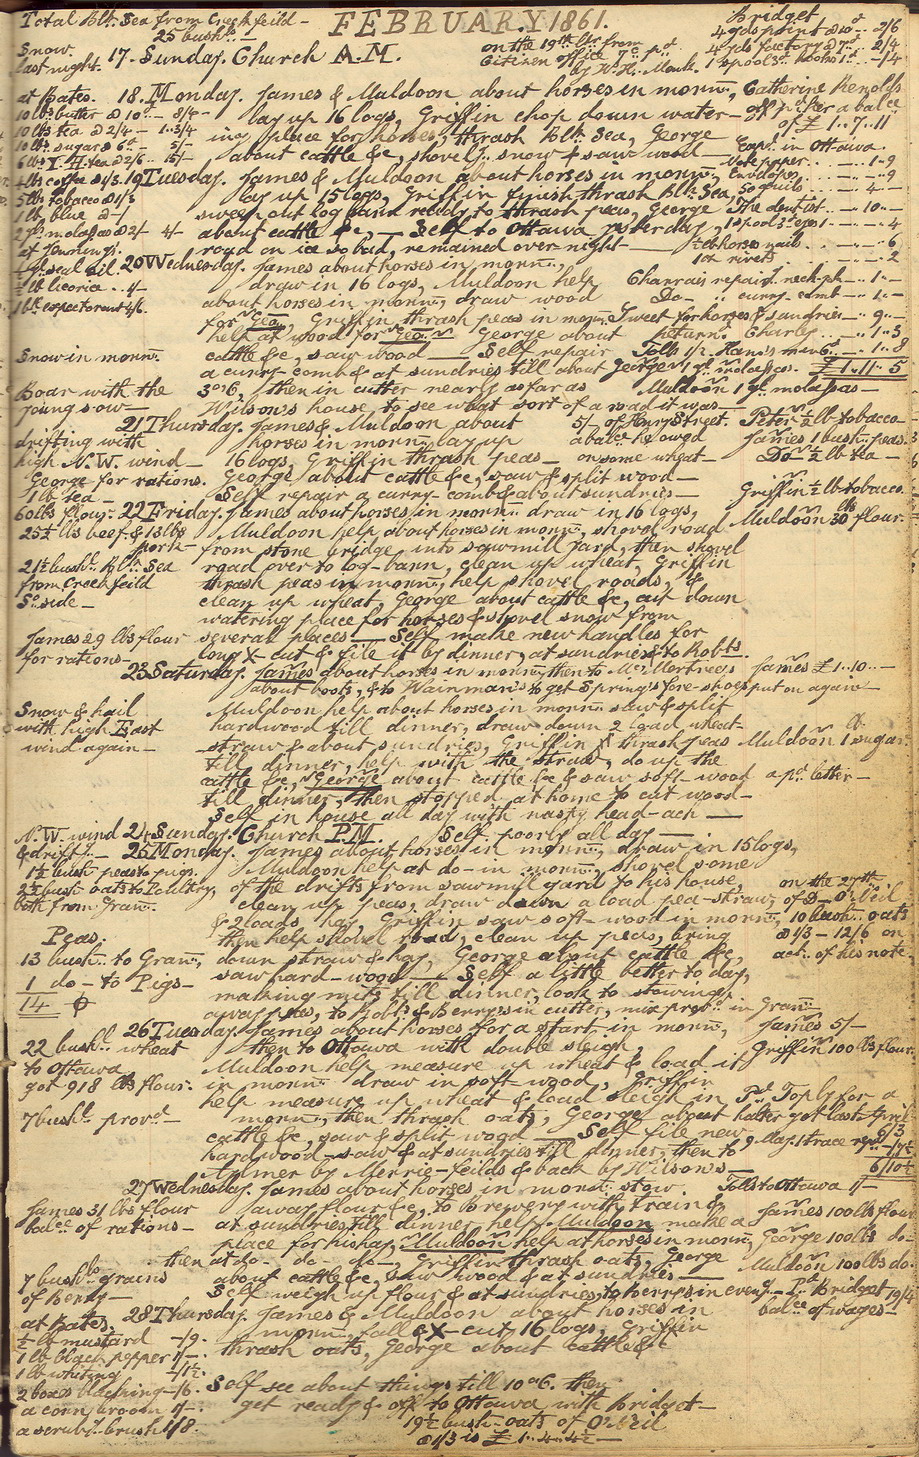 Total Blk. Sea from Creek feild -
25 bushls. -
FEBRUARY 1861.
Bridget
4 yds print @ 10 - 2/6
4 yds factory @ 7 - 2/4
1 spool 3d. hooks 1d. - -/4
Snow
last night.
17. Sunday. Church A.M.
on the 19th
Citizen office
by W. H. Monk.
at Bates.
10 lbs butter @ 10d - 8/4
10 lbs tea @ 2/4 - 1..3/4
10 lbs. sugar @ 6d - 5/-
6 lbs Y. H. tea @ 2/6 - 15/-
4 lbs coffee @ 1/3.
5 lbs tobacco @ 1/3
1 lb. blue @ -/
molas @ 2/ 4-
at Jennings.
seal oil.
lb licorice .. -/-
expectorant 4/6.
18. Monday. James & Muldoon about horses in mornn., Catherine Renolds
lay up 16 logs, Griffin chop down water-
ing place for horses, thrash Blk. Sea, George
about cattle &c, shovelg. snow & saw wood -
off pd. her a balce
of £ 1..7..11
Expd. in Ottawa.
Note paper. . -..1-9
Envelopes . . -.. -9
50 quils . . -.. 4-
The dentist.. -.. 10-
1 spool 3d -.. -.. 4
horse nails . . -.. -.. 6
rivets . . -.. -.. 2
Charrois repairg. neck yk -.. 1..-
Do- .. curry comb -.. 1..-
Sweet for horses & sundries -.. 9..-
Returng. Charley -.. 1..3
Tolls 1/2 Hans's men 6 -.. 1..8
£ 1..11..5
19 Tuesday. James & Muldoon about horses in mornn.,
lay up 15 logs, Griffin finish thrash Blk. Sea
sweep out log barn ready to thrash peas, George
about cattle &c, - Self to Ottawa yesterday,
road on ice so bad, remained over night -
20 Wednesday. James about horses in mornn.,
draw in 16 logs, Muldoon help
about horses in mornn., draw wood
for Geo, Griffin thrash peas in mornn.
help at wood for Geo. George about
Snow in mornn.
cattle &c, saw wood - Self repair
a curry-comb & at sundries till about
George 1 gt. molasses.
Boar with the
young sow -
3 o'6, then in cutter nearly as far as
Wilson's house to see what sort of a road it was -
Muldoon 1 gt. molassas -
21 Thursday. James & Muldoon about
horses in mornn. lay up
16 logs, Griffin thrash peas -
George about cattle &c, saw & split wood -
Self repair a curry-comb & about sundries -
5/- of Henry Street.
a balce. he owed
on some wheat -
Peter 1/2 lb tobacco
James 1 bush. peas.
Do 1/2 lb tea -
Griffin 1/2 lb tobacco
drifting with
high N.W. wind -
George for rations.
1 lb tea -
60 lbs flour.
25 1/2 lbs beef. & 13 lbs
pork -
21 1/2 bush. Blk. Sea
from Creek feild
So. side -
22 Friday. James about horses in mornn. draw in 16 logs,
Muldoon help about horses in mornn., shovel road
from stone bridge into sawmill yard, then shovel
road over to log-barn, clean up wheat, Griffin
thrash peas in mornn., help shovel roads, &
clean up wheat, George about cattle &c, cut down
watering place for horses & shovel snow from
several places - Self make new handles for
long X-cut & file it by dinner, at sundries & to Robts.
Muldoon 30 lbs flour.
James 29 lbs flour
for rations -
23 Saturday. James about horses in mornn., then to Mc.Mertree's
about boots, & to Wainman's to get Spring's fore-shoes put on again -
James £ 1..10..-
Snow & hail
with high East
wind again -
Muldoon help about horses in mornn. saw & split
hardwood till dinner, draw down 2 load wheat-
straw & about sundries, Griffin thrash peas
till dinner, help with the straw, do up the
cattle &c, George about cattle &c & saw soft wood
till dinner, then stopped at home to cut wood -
Self in house all day with nasty head-ach -
Muldoon 1 lb. sugar.
a pd. letter -
N.W. wind
& driftg. -
24 Sunday. Church P.M. Self poorly all day -
25 Monday. James about horses in mornn., draw in 15 logs,
Muldoon help at do- in mornn., shovel some
of the drifts from sawmill yard to his house,
clean up peas, draw down a load pea-straw,
& 2 loads hay, Griffin saw soft-wood in mornn.,
then help shovel road, clean up peas, bring
down straw & hay, George about cattle &c,
saw hard-wood - Self a little better to day,
making mits till dinner, look to stowing
away peas, to Robts. & Berry's in cutter, mix provr. in Grann.
1 1/2 bush peas to pigs.
2 1/2 bush oats to Poultry,
both from Grann.
on the 27th
of D- O'Neil
10 bush.. oats
@ 1/3 - 12/6 on
act. of his note.
Peas.
13 bush.. to Grann,
1 do - to Pigs -
14
26 Tuesday. James about horses for a start in mornn.,
then to Ottawa with double sleigh,
Muldoon help measure up wheat & load it
in mornn. draw in soft-wood, Griffin
help measure up wheat & load sleigh in
mornn., then thrash oats, George about
cattle &c, saw & split wood - Self file new
hardwood-saw & at sundries till dinner, then to
Aylmer by Merrie-feilds & back by Wilson's -
James 5/-
Griffin 100 lbs flour.
Pd. Toply for a
halter got last April
6/3
9 May. 1 trace repd. -/7 1/2
6/10 1/2
22 bushl. wheat
to Ottawa
got 918 lbs flour.
7 bushl. provd. -
27 Wednesday. James about horses in mornn. stow
away flour &c, to Brewery with train &
at sundries till dinner, help Muldoon make a
place for his hay, Muldoon help at horses in mornn.,
then at do - do - do -, Griffin thrash oats, George
about cattle &c, saw wood & at sundries -
Self weigh up flour & at sundries, to Berrys in eveng. -
Tolls to Ottawa 1/-
James 100 lbs flour
George 100 lbs do-
Muldoon 100 lbs do.
Pd. Bridget 19/4
balce of wages -
James 31 lbs flour
balce. of rations -
7 bushls grains
of Berry -
at Bates.
1/2 lb mustard -/9.
1 lb black pepper 1/-.
1 lb whiting -/1 1/2.
2 boxes blacking -/6.
a corn broom 1/-.
a scrubg. brush 1/8.
28 Thursday. James & Muldoon about horses in
mornn., fall & X-cut 16 logs, Griffin
thrash oats, George about cattle &c
Self see about things till 10 o'6. then
get ready & off to Ottawa with Bridget -
19 1/2 bush- oats of O'Neil
@ 1/3 is £ 1..4..4 1/2 -